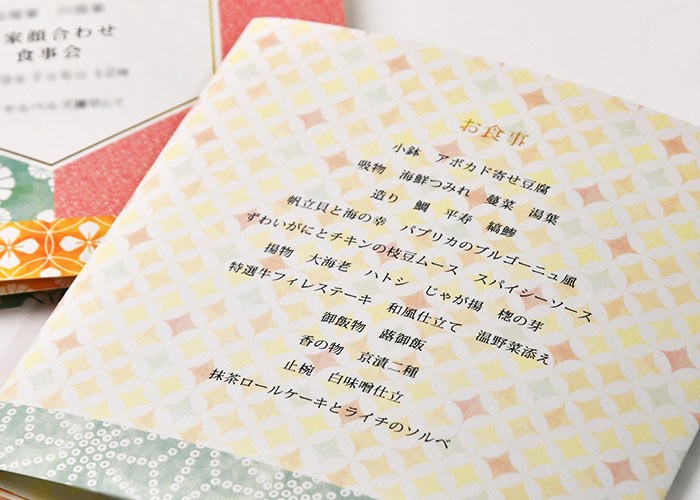 家顔合わせ
食事会
お食事
小鉢 アボカド寄せ豆腐
吸物 海鮮つみれ 蔓菜 湯葉
造り 鯛 平寿 縞鯵
帆立貝と海の幸 パプリカのブルゴーニュ風
ずわいがにとチキンの枝豆ムース スパイシーソース
揚物 大海老 ハトシ じゃが揚 楤の芽
特選牛フィレステーキ 和風仕立て 温野菜添え
御飯物 蕗御飯
香の物 京漬二種
止椀 白味噌仕立
抹茶ロールケーキとライチのソルベ